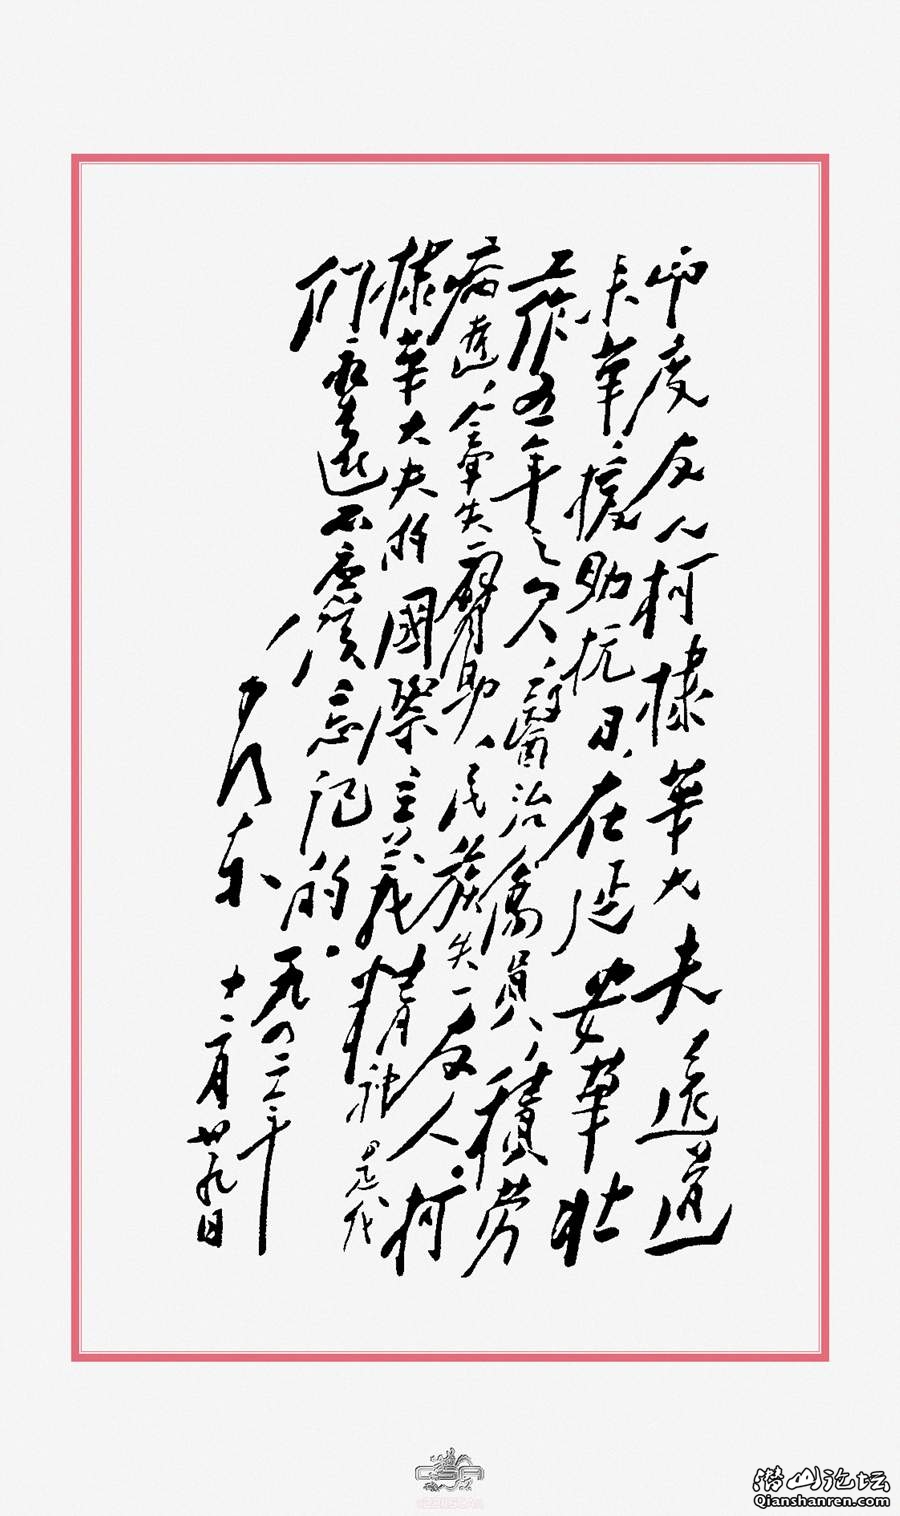 印度友人柯棣華大夫遠道
来華、援助抗日、在延安華北
工作五年之久、醫治傷員、積劳
病逝、全軍失一臂助、民族失一友人。柯
棣華大夫的國際主義精神是我
们永遠不應該忘記的。
毛泽东
一九四二年
十二月廿九日
潜山论坛
Qianshanren.com